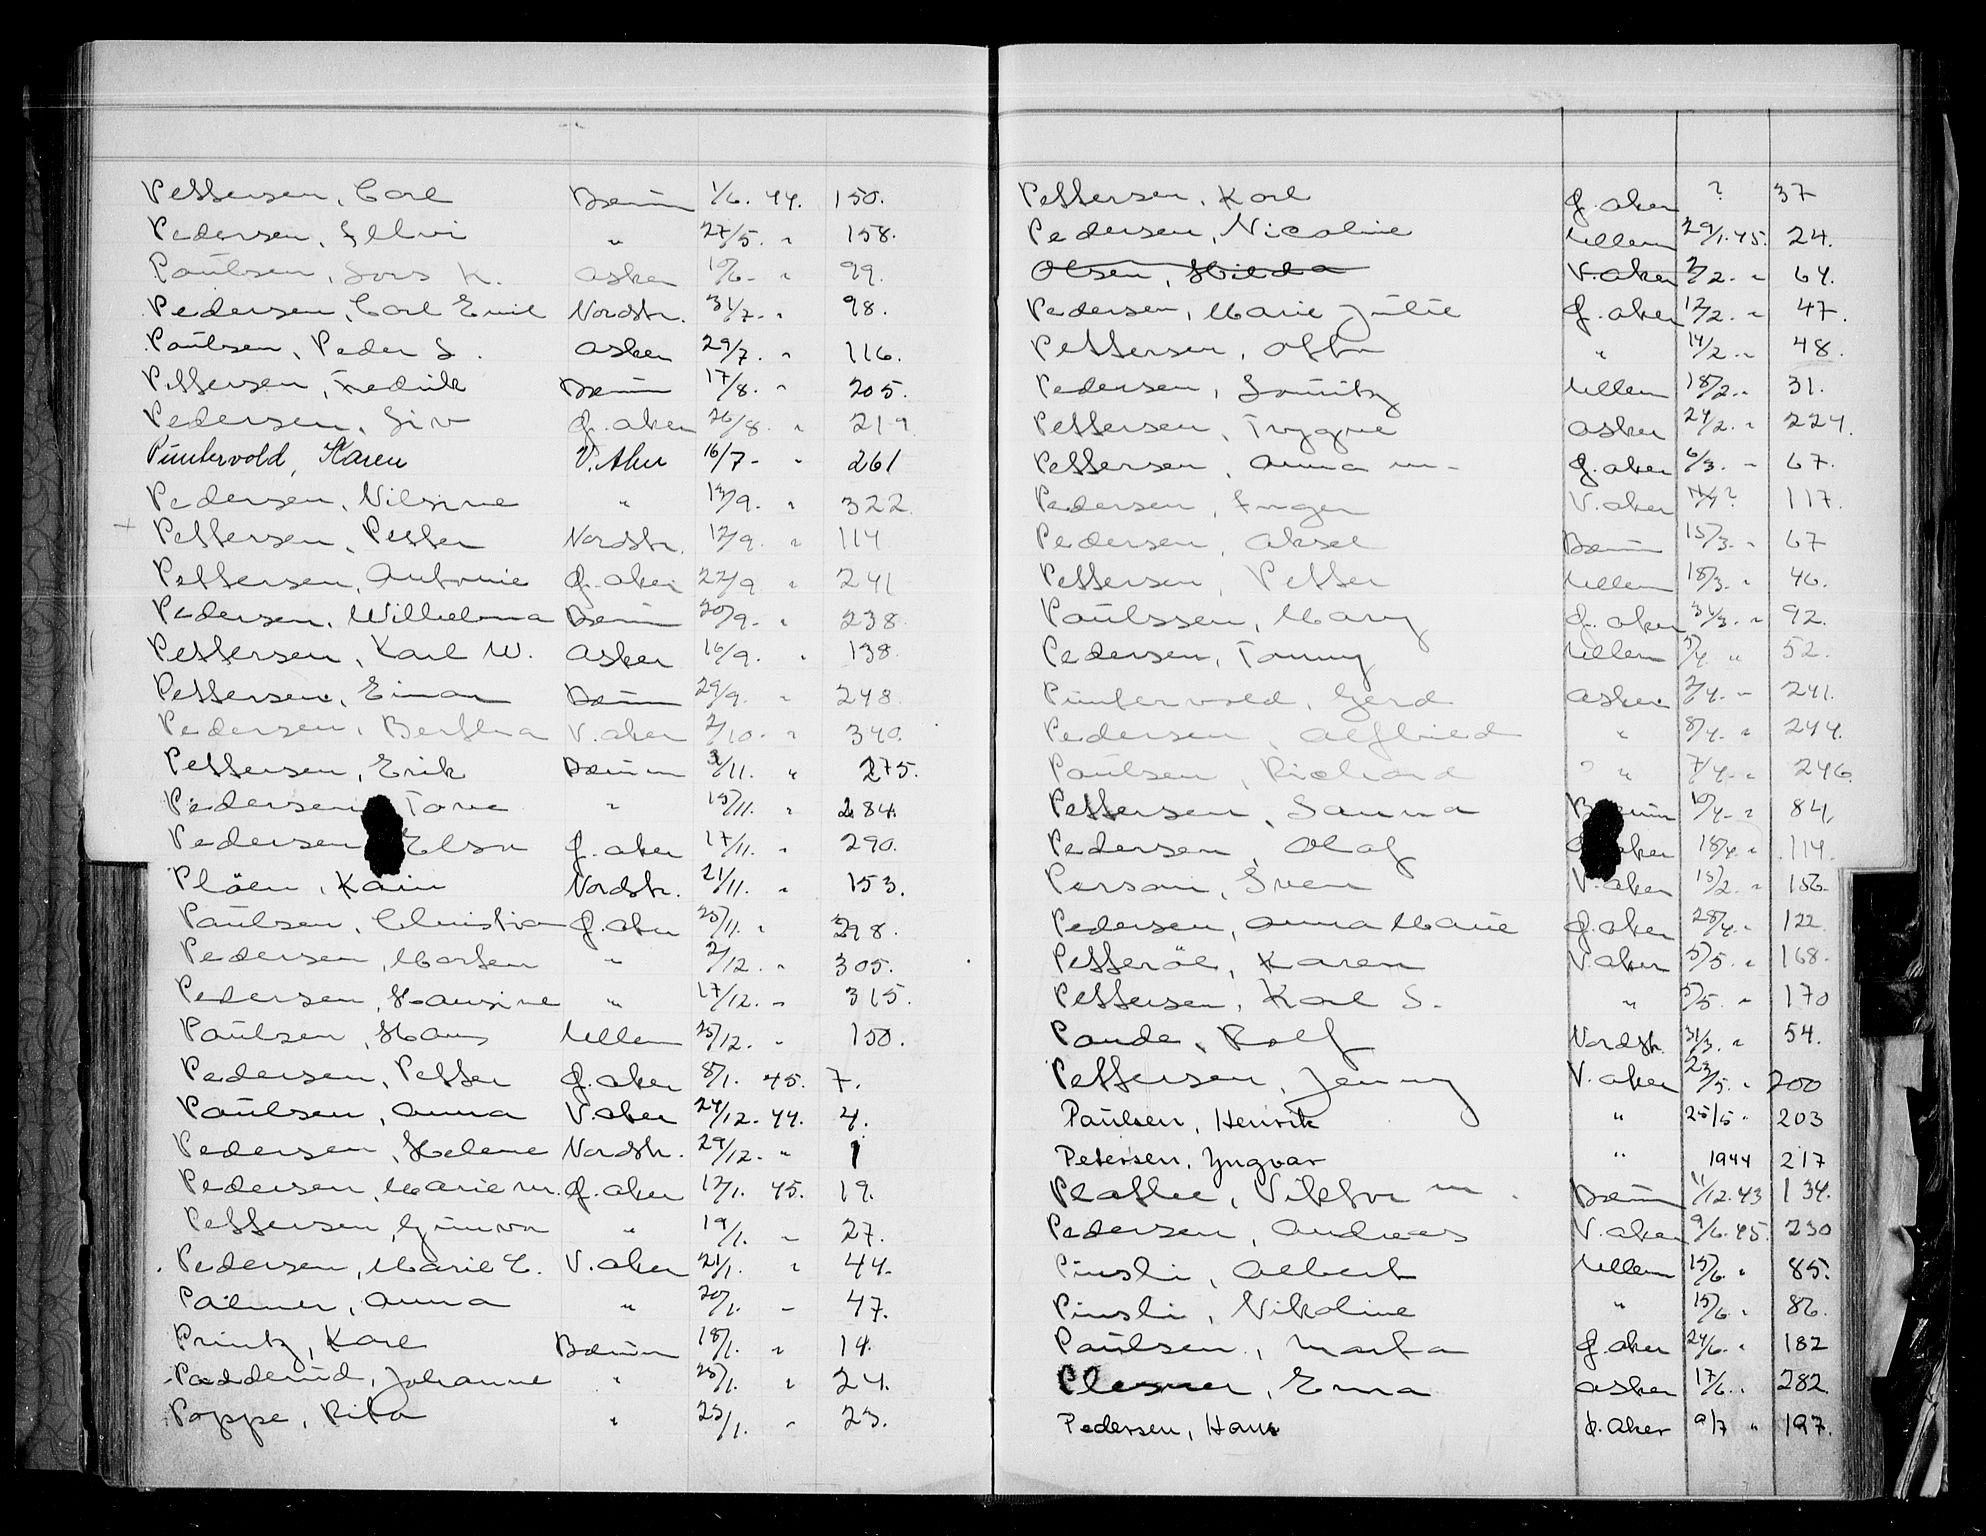 Pettersen, Carl Bærum 1/6. 44. 150.
Pedersen, " 27/5. " 158.
Paulsen, Lars K. Asker 10/6- " 99.
Pedersen, Carl Emil Nordstr. 31/7. " 98.
Paulsen, Peder L. Asker 29/7. " 116.
Pettersen, Fredrik Bærum 17/8. " 205.
Pedersen, Siv Ø. aker 26/8. " 219
Puntervold, Karen V. Aker 16/7- " 261
Pedersen, Nilsine " 13/9. " 322.
+ Pettersen, Petter Nordstr. 12/9. " 114
Pettersen, Antonie Ø. aker 22/9 " 241
Pedersen, Wilhelmina Bærum 20/9- " 238.
Pettersen, Karl W. Asker 16/9. " 138.
Pettersen, Einar Bærum 29/9. " 248.
Pedersen, Bertha V. aker 2/10- " 340.
Pettersen, Erik Bærum /11. " 275.
Pedersen Tove " 15/11. " 284.
Pedersen Elsa Ø. aker 17/11. " 290.
Pløen, Kain Nordstr. 21/11. " 153.
Paulsen, Christian Ø. aker 25/11. " 298.
Pedersen, Morten " 2/12. " 305.
Pedersen, Hansine " 17/12. " 315.
Paulsen, Hans Ullern 25/12. " 150.
Pedersen, Petter Ø. aker 8/1. 45. 7.
Paulsen, Anna V. aker 24/12. 44. 4.
Pedersen, Helene Nordstr. 29/12. " 1
Pedersen, Marie M. Ø. aker 12/1. 45. 19.
Pettersen, Gunvor " 19/1. " 27.
Pedersen, Marie E. V. aker 21/1. " 44.
Palmer, Anna " 20/1. " 47.
Printz, Karl Bærum 18/1. " 14.
Johanne " 25/1. " 24.
Poppe, Rita " 25/1. " 23.
Pettersen, Karl Ø. aker ? 37
Pedersen, Nicoline Ullern 29/1. 45. 24.
Olsen, Hilda V. aker 2/2. " 64.
Pedersen, Marie Julie Ø. aker 12/2. " 47.
Pettersen, Otto " 14/2. " 48.
Pedersen, Lauritz Ullern 18/2. " 31.
Pettersen, Trygve Asker 24/2. " 224.
Pettersen, Anna M. Ø. aker 6/3. " 67.
Pedersen, Inger V. aker ? 117.
Pedersen, Aksel Bærum 15/3. " 67
Pettersen, Petter Ullern 18/3. " 46.
Paulssen, Mary Ø. aker 31/3. " 92.
Pedersen, Tommy Ullern 5/4. " 52.
Puntervold, Gerd Asker 2/4. " 241.
Pedersen, Alfhild " 8/4. " 244.
Paulsen, Richard " 7/4. " 246.
Pettersen, Sanna Bærum 10/4. " 84.
Pedersen, Olaf aker 18/4. " 114.
Person, Sven V. aker 15/2. " 156.
Pedersen, Anna Marie Ø. aker 28/4. " 122.
Petterøe, Karen V. aker 5/5. " 168.
Pettersen, Karl S. " 5/5. " 170
Paude, Rolf Nordstr. 31/3. " 54.
Pettersen, Jenny V. aker 23/5. " 200
Paulsen, Henrik " 25/5 " 203
Petersen, Yngvar " 1944 217
Viktor M. Bærum 11/12. 43 134.
Pedersen, Andreas V. aker 9/6. 45. 230
Pinsli, Albert Ullern 15/6. " 85.
Pinsli, Nikoline " 15/6. " 86.
Paulsen, Marta Ø. aker 24/6. " 182
Plesner, Erna Asker 17/6. " 282.
Pedersen, Hans Ø. aker 9/7 " 197.